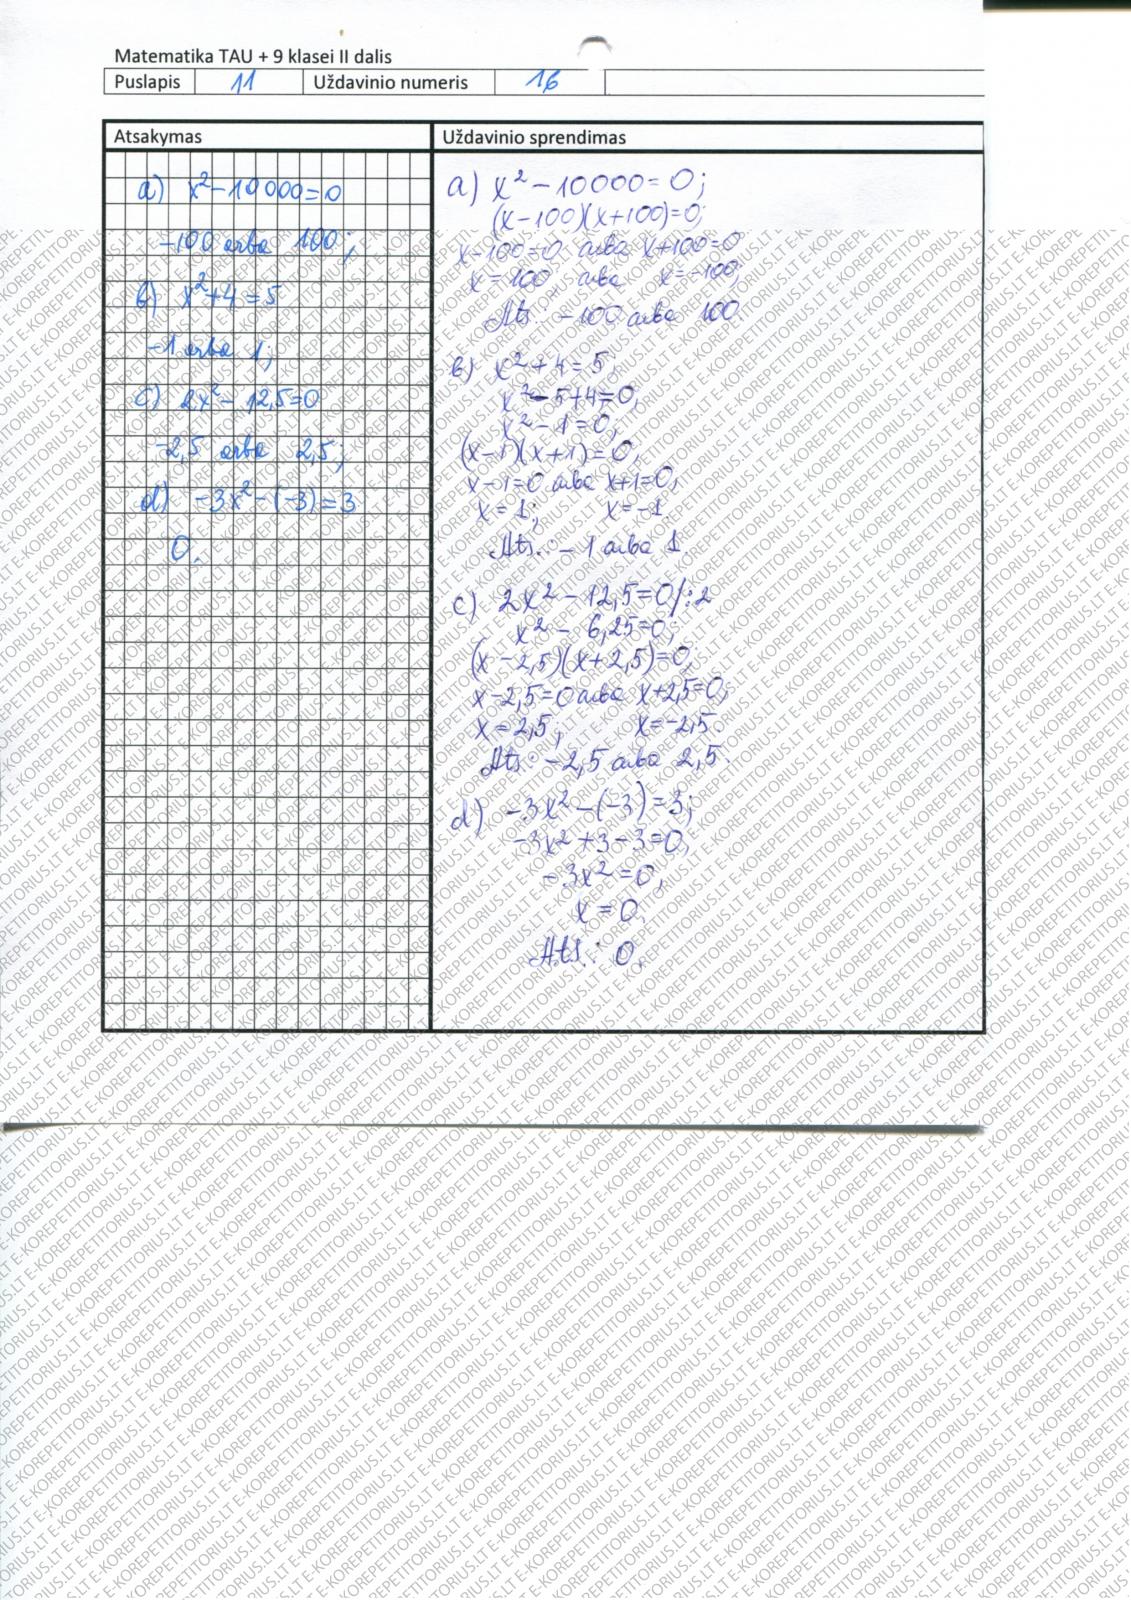 Matematika TAU + 9 klasei II dalis
Puslapis 11 Uždavinio numeris 16
Atsakymas
a) x² - 10 000 = 0
-100 arba 100;
b) x² + 4 = 5
-1 arba 1;
c) 2x² - 12,5 = 0
-2,5 arba 2,5;
d) -3x² - (-3) = 3
0.
Uždavinio sprendimas
a) x² - 10000 = 0;
(x-100)(x+100)=0;
x-100=0 arba x+100=0
x=100, arba x=-100;
Ats.: -100 arba 100.
b) x² + 4 = 5;
x² - 5+4=0;
x² - 1 = 0;
(x-1)(x+1)=0;
x-1=0 arba x+1=0;
x=1; x=-1
Ats.: -1 arba 1.
c) 2x² - 12,5 = 0/:2
x² - 6,25=0;
(x-2,5)(x+2,5)=0;
x-2,5=0 arba x+2,5=0;
x=2,5; x=-2,5.
Ats.: -2,5 arba 2,5.
d) -3x² - (-3) = 3;
-3x² + 3 - 3 = 0;
-3x² = 0;
x = 0.
Ats.: 0.
E-KOREPETITORIUS.LT